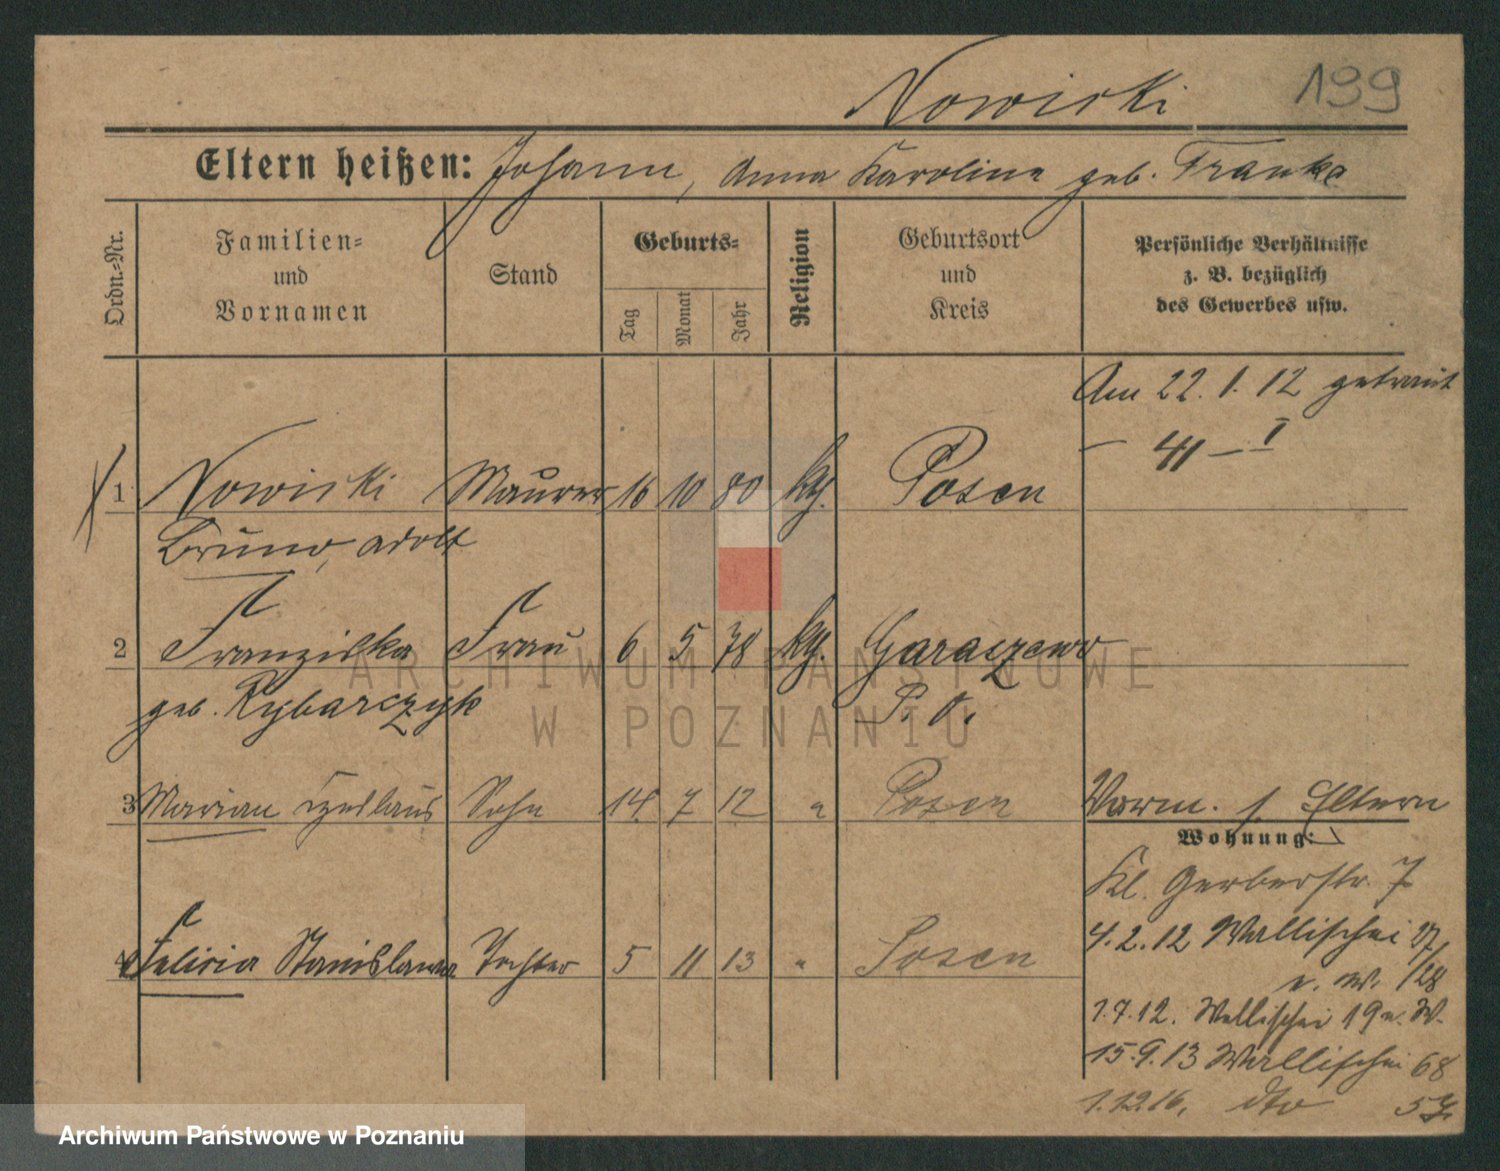 Nowicki 199
Eltern heißen: Johann, Anna Karolina geb. Franke
Ordn.-Nr.
Familien- und Vornamen
Stand
Geburts-
Tag
Monat
Jahr
Religion
Geburtsort und Kreis
Persönliche Verhältnisse z. B. bezüglich des Gewerbes usw.
Am 22. 1. 12 getraut
— 41 — I
1 Nowicki Maurer 16 10 80 kth. Posen
Bruno, Adolf
2 Franziska Frau 6 5 78 kth. Garaczewo
geb. Rybarczyk P. O.
3 Marian Sohn 14. 7 12 " Posen Vorm. s. Eltern
Wohnung:
Kl. Gerberstr. 7
4. 2. 12 Wallischei 27/28
4 Felicia Stanislawa Tochter 5 11 13 " Posen
1. 7. 12. Wallischei 19 n. W.
15. 9. 13 Wallischei 68
1. 12. 16. dto
ARCHIWUM PAŃSTWOWE
W POZNANIU
Archiwum Państwowe w Poznaniu